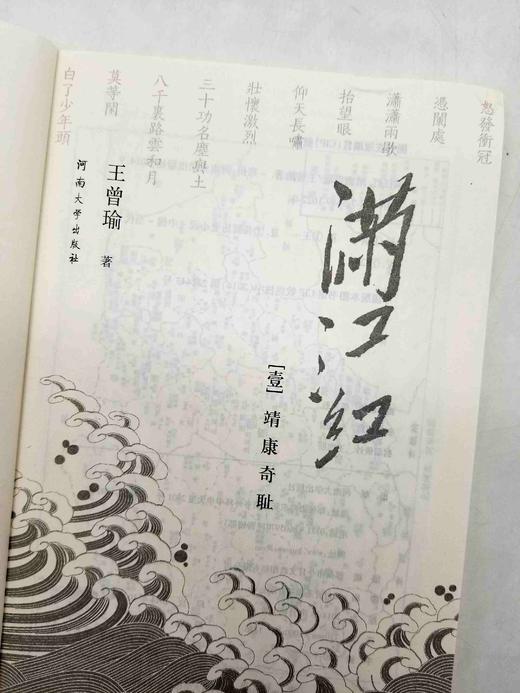 怒發衝冠
憑闌處
瀟瀟雨歇
抬望眼
仰天長嘯
壯懷激烈
三十功名塵與土
八千裏路雲和月
莫等閑
白了少年頭
满江红
[壹] 靖康奇耻
王曾瑜 著
河南大学出版社